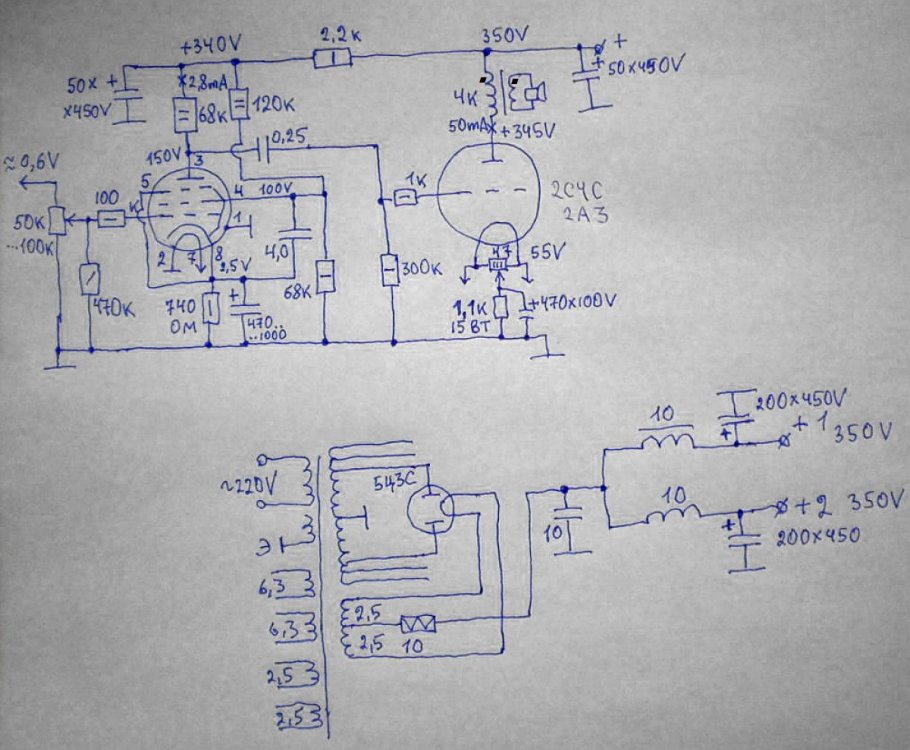 +340V
2,2к
350V
+
50x +
x450V
2,8mA
68к
120к
4к
+ 50x450V
50mA
+345V
≈0,6V
150V
3
0,25
5
4
100V
1к
2С4С
2А3
100
к
50к
...100к
1
2
7
8
2,5V
4,0
47
55V
470к
740
ОМ
+
470..
..1000
68к
300к
1,1к
15 ВТ
+470x100V
10
200x450V
+
+ 1 350V
~220V
5Ц3С
10
+2 350V
Э
10
+
200x450
6,3
6,3
2,5
2,5
10
2,5
2,5